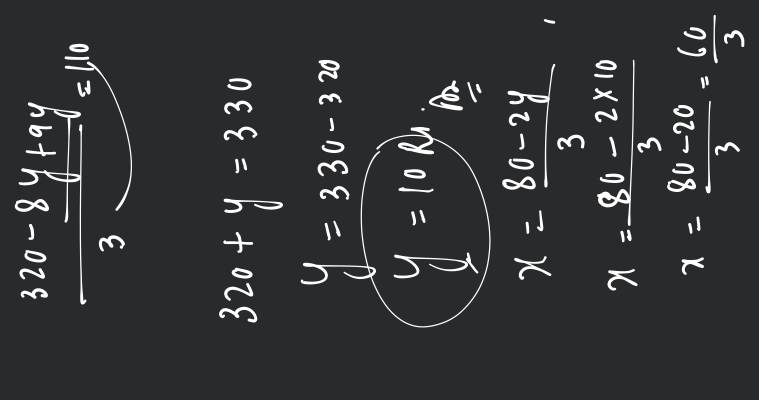 320 - 8y + 9y / 3 = 110
320 + y = 330
y = 330 - 320
y = 10 Rs.
x = 80 - 2y / 3
x = 80 - 2 × 10 / 3
x = 80 - 20 / 3 = 60 / 3